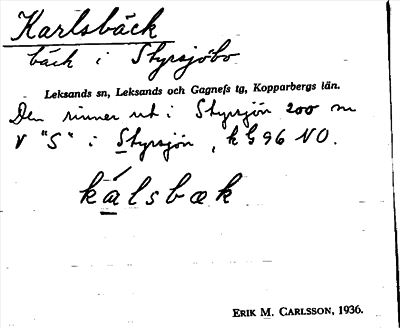 Karlsbäck
bäck i Styrsjöbo
Leksands sn, Leksands och Gagnefs tg, Kopparbergs län.
Den rinner ut i Styrsjön 200 m
V "S" i Styrsjön, kG96 NO.
kálsbæk
ERIK M. CARLSSON, 1936.